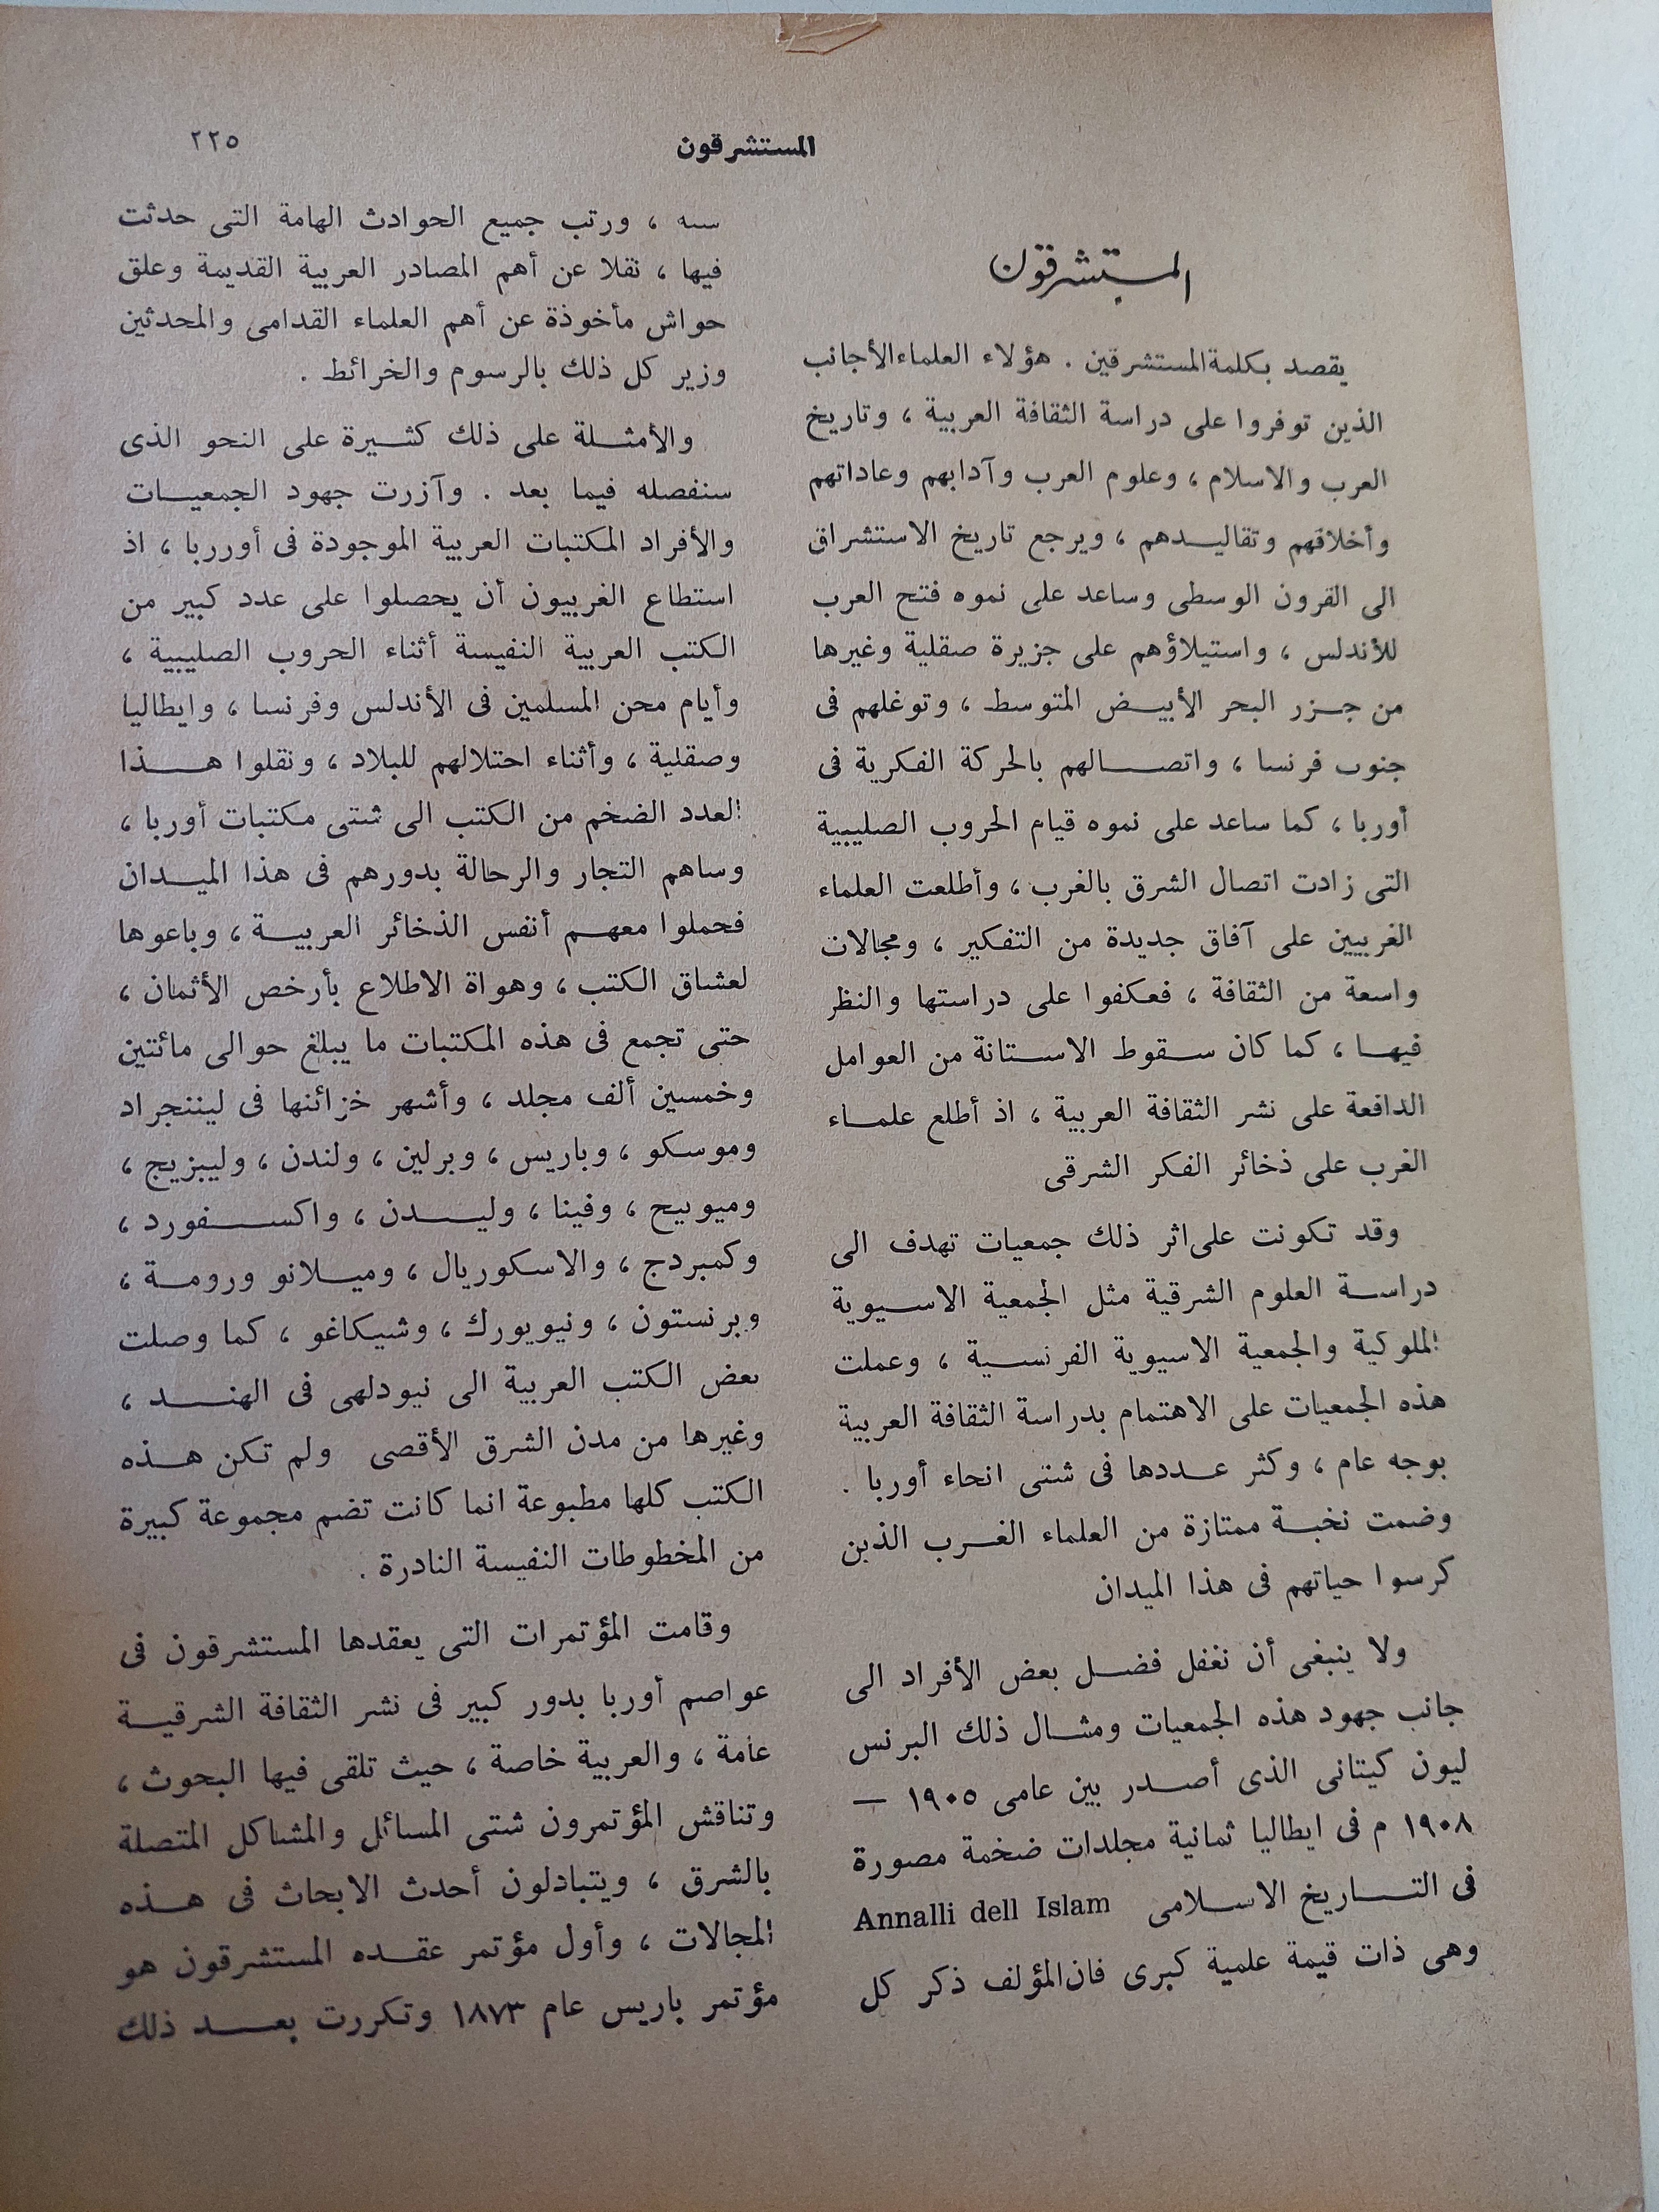 المستشرقون
٢٢٥
المستشرقون
يقصد بكلمة المستشرقين . هؤلاء العلماء الأجانب
الذين توفروا على دراسة الثقافة العربية ، وتاريخ
العرب والاسلام ، وعلوم العرب وآدابهم وعاداتهم
وأخلاقهم وتقاليدهم ، ويرجع تاريخ الاستشراق
الى القرون الوسطى وساعد على نموه فتح العرب
للأندلس ، واستيلاؤهم على جزيرة صقلية وغيرها
من جزر البحر الأبيض المتوسط ، وتوغلهم فى
جنوب فرنسا ، واتصالهم بالحركة الفكرية فى
أوربا ، كما ساعد على نموه قيام الحروب الصليبية
التى زادت اتصال الشرق بالغرب ، وأطلعت العلماء
الغربيين على آفاق جديدة من التفكير ، ومجالات
واسعة من الثقافة ، فعكفوا على دراستها والنظر
فيها ، كما كان سقوط الاستانة من العوامل
الدافعة على نشر الثقافة العربية ، اذ أطلع علماء
الغرب على ذخائر الفكر الشرقى
وقد تكونت على اثر ذلك جمعيات تهدف الى
دراسة العلوم الشرقية مثل الجمعية الاسيوية
الملوكية والجمعية الاسيوية الفرنسية ، وعملت
هذه الجمعيات على الاهتمام بدراسة الثقافة العربية
بوجه عام ، وكثر عددها فى شتى انحاء أوربا .
وضمت نخبة ممتازة من العلماء الغرب الذين
كرسوا حياتهم فى هذا الميدان
ولا ينبغى أن نغفل فضل بعض الأفراد الى
جانب جهود هذه الجمعيات ومثال ذلك البرنس
ليون كيتانى الذى أصدر بين عامى ١٩٠٥ —
١٩٠٨ م فى ايطاليا ثمانية مجلدات ضخمة مصورة
فى التاريخ الاسلامى Annalli dell Islam
وهى ذات قيمة علمية كبرى فان المؤلف ذكر كل
سنه ، ورتب جميع الحوادث الهامة التى حدثت
فيها ، نقلا عن أهم المصادر العربية القديمة وعلق
حواش مأخوذة عن أهم العلماء القدامى والمحدثين
وزير كل ذلك بالرسوم والخرائط .
والأمثلة على ذلك كثيرة على النحو الذى
سنفصله فيما بعد . وآزرت جهود الجمعيات
والأفراد المكتبات العربية الموجودة فى أورربا ، اذ
استطاع الغربيون أن يحصلوا على عدد كبير من
الكتب العربية النفيسة أثناء الحروب الصليبية ،
وأيام محن المسلمين فى الأندلس وفرنسا ، وايطاليا
وصقلية ، وأثناء احتلالهم للبلاد ، ونقلوا هذا
العدد الضخم من الكتب الى شتى مكتبات أوربا ،
وساهم التجار والرحالة بدورهم فى هذا الميدان
فحملوا معهم أنفس الذخائر العربية ، وباعوها
لعشاق الكتب ، وهواة الاطلاع بأرخص الأثمان ،
حتى تجمع فى هذه المكتبات ما يبلغ حوالى مائتين
وخمسين ألف مجلد ، وأشهر خزائنها فى ليننجراد
وموسكو ، وباريس ، وبرلين ، ولندن ، وليبزيج ،
وميونيخ ، وفينا ، وليدن ، واكسفورد ،
وكمبردج ، والاسكوريال ، وميلانو ورومة ،
وبرنستون ، ونيويورك ، وشيكاغو ، كما وصلت
بعض الكتب العربية الى نيودلهى فى الهند ،
وغيرها من مدن الشرق الأقصى ولم تكن هذه
الكتب كلها مطبوعة انما كانت تضم مجموعة كبيرة
من المخطوطات النفيسة النادرة .
وقامت المؤتمرات التى يعقدها المستشرقون فى
عواصم أوربا بدور كبير فى نشر الثقافة الشرقية
عامة ، والعربية خاصة ، حيث تلقى فيها البحوث ،
وتناقش المؤتمرون شتى المسائل والمشاكل المتصلة
بالشرق ، ويتبادلون أحدث الابحاث فى هذه
المجالات ، وأول مؤتمر عقده المستشرقون هو
مؤتمر باريس عام ١٨٧٣ وتكررت بعد ذلك